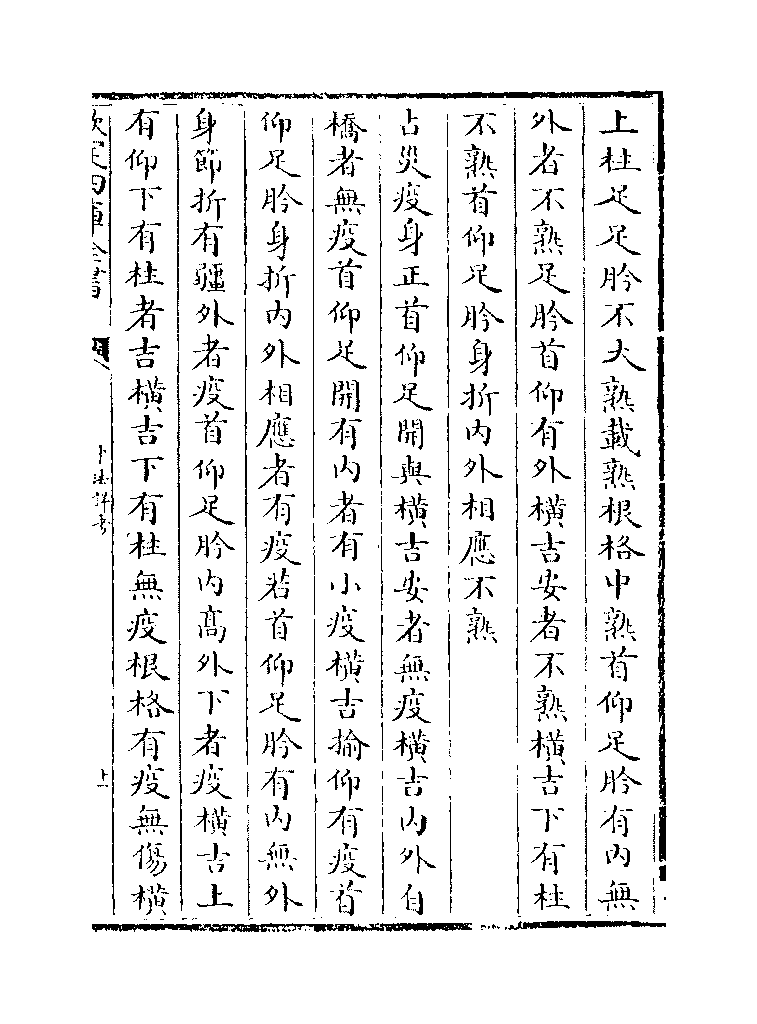 上柱足足肣不大熟載熟根格中熟首仰足肣有内無
外者不熟足肣首仰有外橫吉安者不熟橫吉下有柱
不熟首仰足肣身折内外相應不熟
占災疫身正首仰足開與橫吉安者無疫橫吉内外自
橋者無疫首仰足開有内者有小疫橫吉揄仰有疫首
仰足肣身折内外相應者有疫若首仰足肣有内無外
身節折有疆外者疫首仰足肣内高外下者疫橫吉上
有仰下有柱者吉橫吉下有柱無疫根格有疫無傷橫
欽定四庫全書
卜法詳考
十一